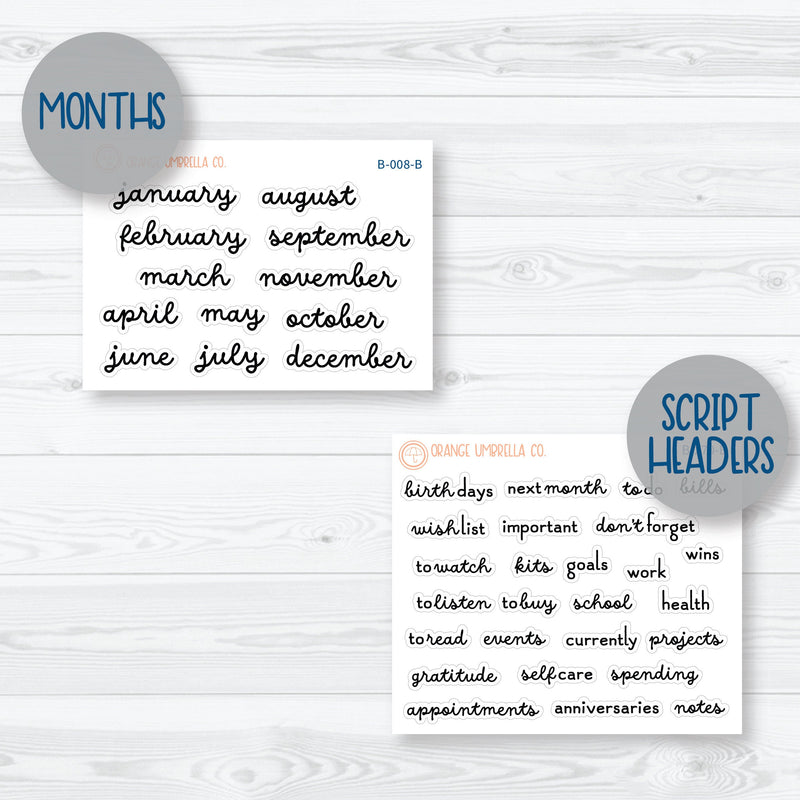 MONTHS
ORANGE UMBRELLA CO. B-008-B
january august
february september
march november
april may october
june july december
SCRIPT
HEADERS
ORANGE UMBRELLA CO.
birthdays next month to do bills
wishlist important don't forget
to watch kits goals work wins
to listen to buy school health
to read events currently projects
gratitude selfcare spending
appointments anniversaries notes